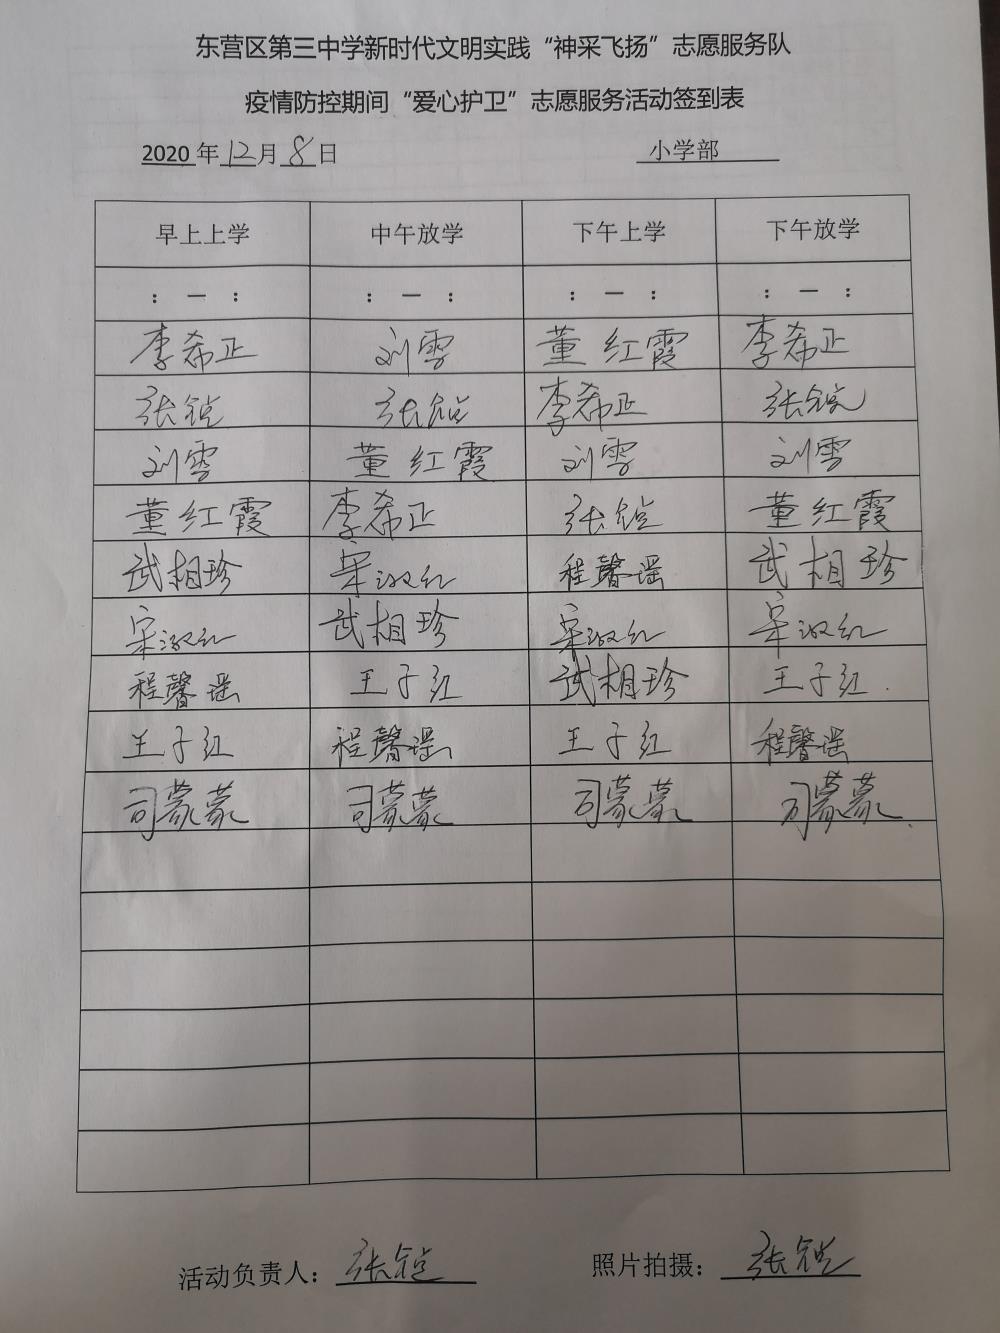 东营区第三中学新时代文明实践“神采飞扬”志愿服务队
疫情防控期间“爱心护卫”志愿服务活动签到表
2020 年 12 月 8 日 小学部
早上上学 中午放学 下午上学 下午放学
： — ： ： — ： ： — ： ： — ：
李希正 刘雪 董红霞 李希正
张锭 张锭 李希正 张锭
刘雪 董红霞 刘雪 刘雪
董红霞 李希正 张锭 董红霞
武相珍 宋淑红 程馨谣 武相珍
宋淑红 武相珍 宋淑红 宋淑红
程馨谣 王子红 武相珍 王子红
王子红 程馨谣 王子红 程馨谣
司蒙蒙 司蒙蒙 司蒙蒙 司蒙蒙
活动负责人：张锭 照片拍摄：张锭